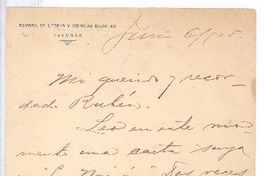 REVISTA DE LETRAS Y CIENCIAS SOCIALES
TUCUMÁN
Mi querido y recor-
dado Rubén.
Leo en este mo-
mento una carta suya
Dos veces